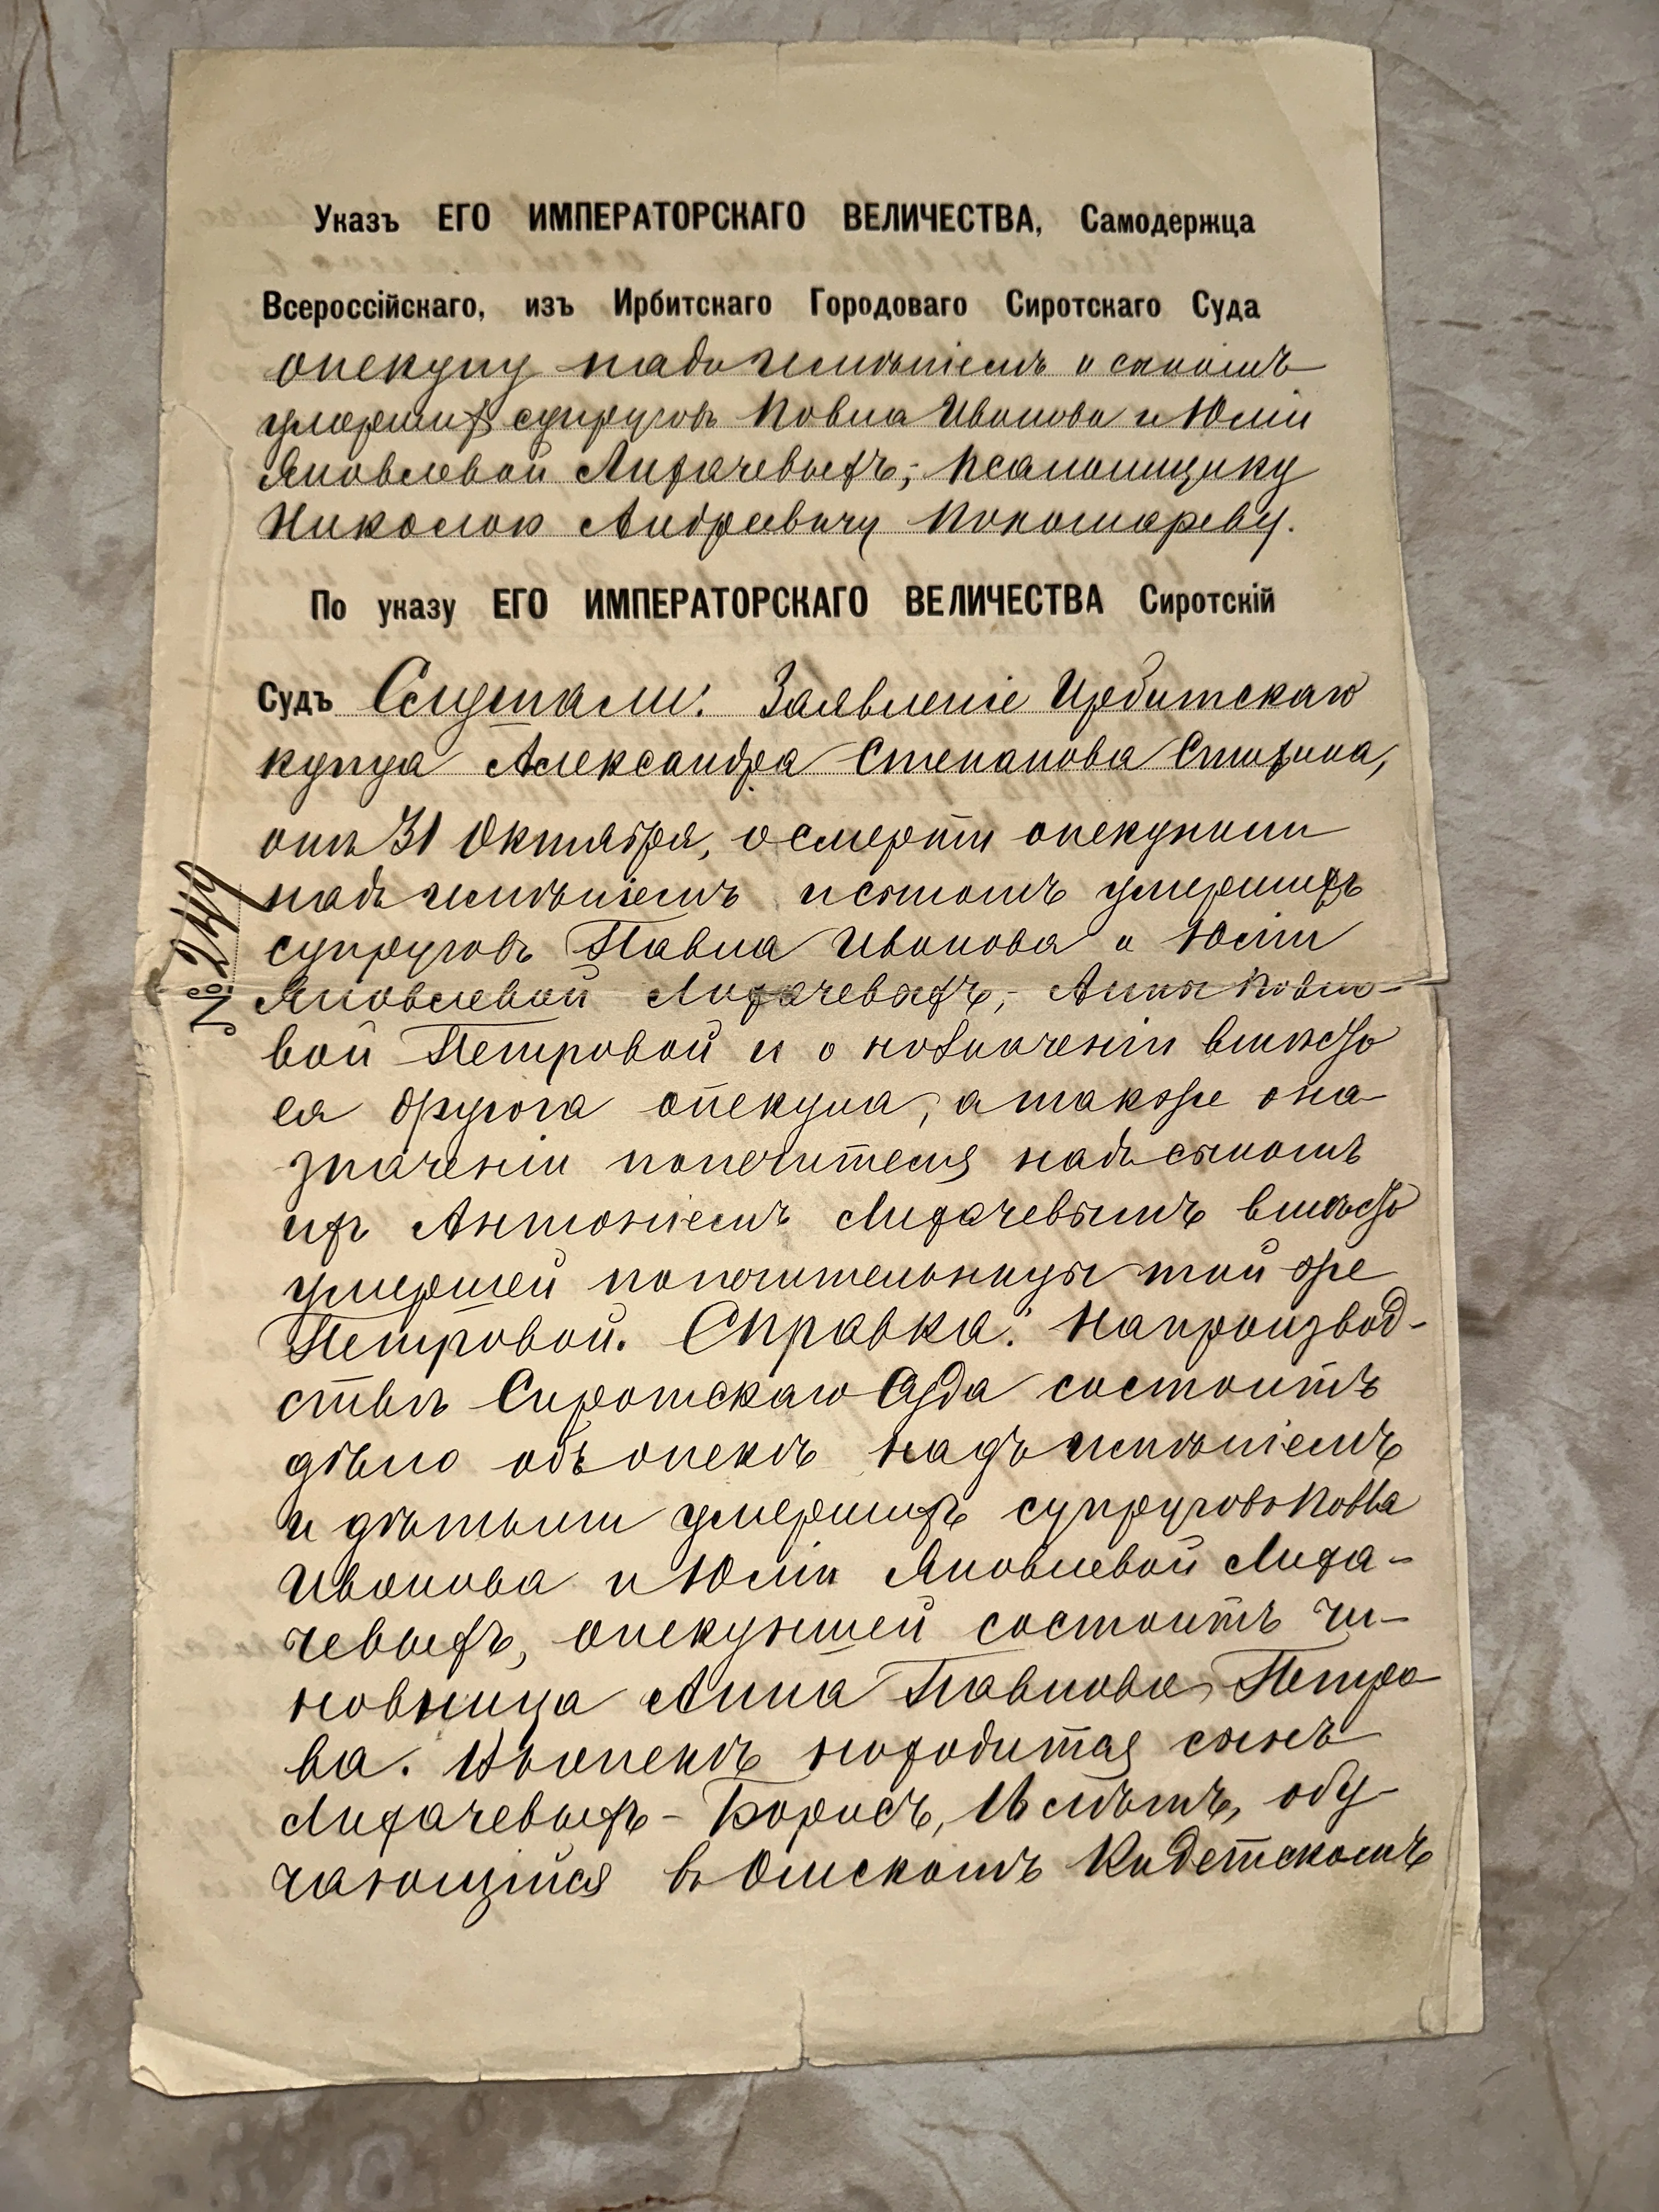 Указъ ЕГО ИМПЕРАТОРСКАГО ВЕЛИЧЕСТВА, Самодержца
Всероссійскаго, изъ Ирбитскаго Городоваго Сиротскаго Суда
опекуну надъ имѣніемъ и сыномъ
умершихъ супруговъ Павла Иванова и Юліи
Яковлевой Лихачевыхъ, Псаломщику
Николаю Андреевичу Пономареву.
По указу ЕГО ИМПЕРАТОРСКАГО ВЕЛИЧЕСТВА Сиротскій
Судъ Слушали: Заявленіе Ирбитскаго
купца Александра Степанова
отъ 31 Октября, о смерти опекунши
надъ имѣніемъ и сыномъ умершихъ
супруговъ Павла Иванова и Юліи
Яковлевой Лихачевыхъ, Анны Павло-
вой Петровой и о назначеніи вмѣсто
ея другога опекуна, а также о на-
значеніи попечителя надъ сыномъ
ихъ Антоніемъ Лихачевымъ вмѣсто
умершей попечительницы той же
Петровой. Справка: На производ-
ствѣ Сиротскаго Суда состоитъ
дѣло объ опекѣ надъ имѣніемъ
и дѣтьми умершихъ супруговъ Павла
Иванова и Юліи Яковлевой Лиха-
чевыхъ, опекуншей состоитъ чи-
новница Анна Павлова Петро
ва. Въ опекѣ находится сынъ
Лихачевыхъ - Борисъ, лѣтъ, обу-
чающійся въ Омскомъ Кадетскомъ
№